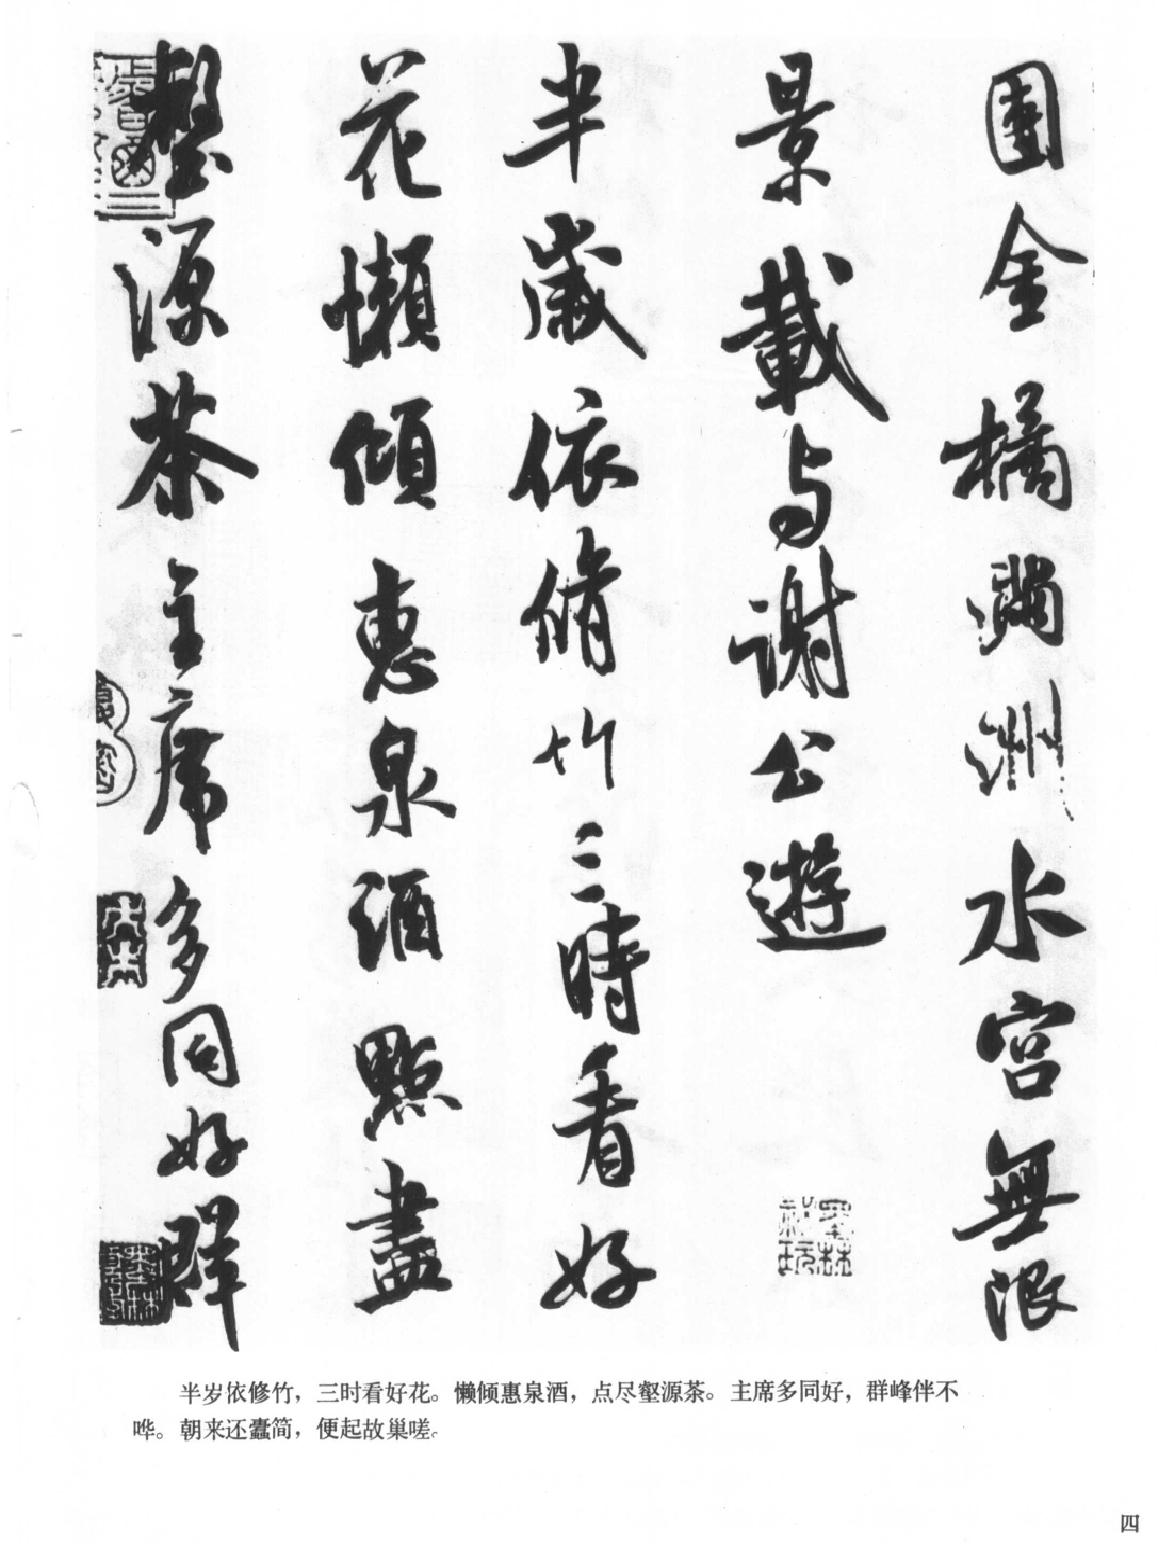 團金橘滿洲水宫無限
景載与謝公遊
半歲依脩竹三時看好
花懶傾惠泉酒點盡
壑源茶主席多同好群
半岁依修竹，三时看好花。懒倾惠泉酒，点尽壑源茶。主席多同好，群峰伴不
哗。朝来还蠹简，便起故巢嗟。
四